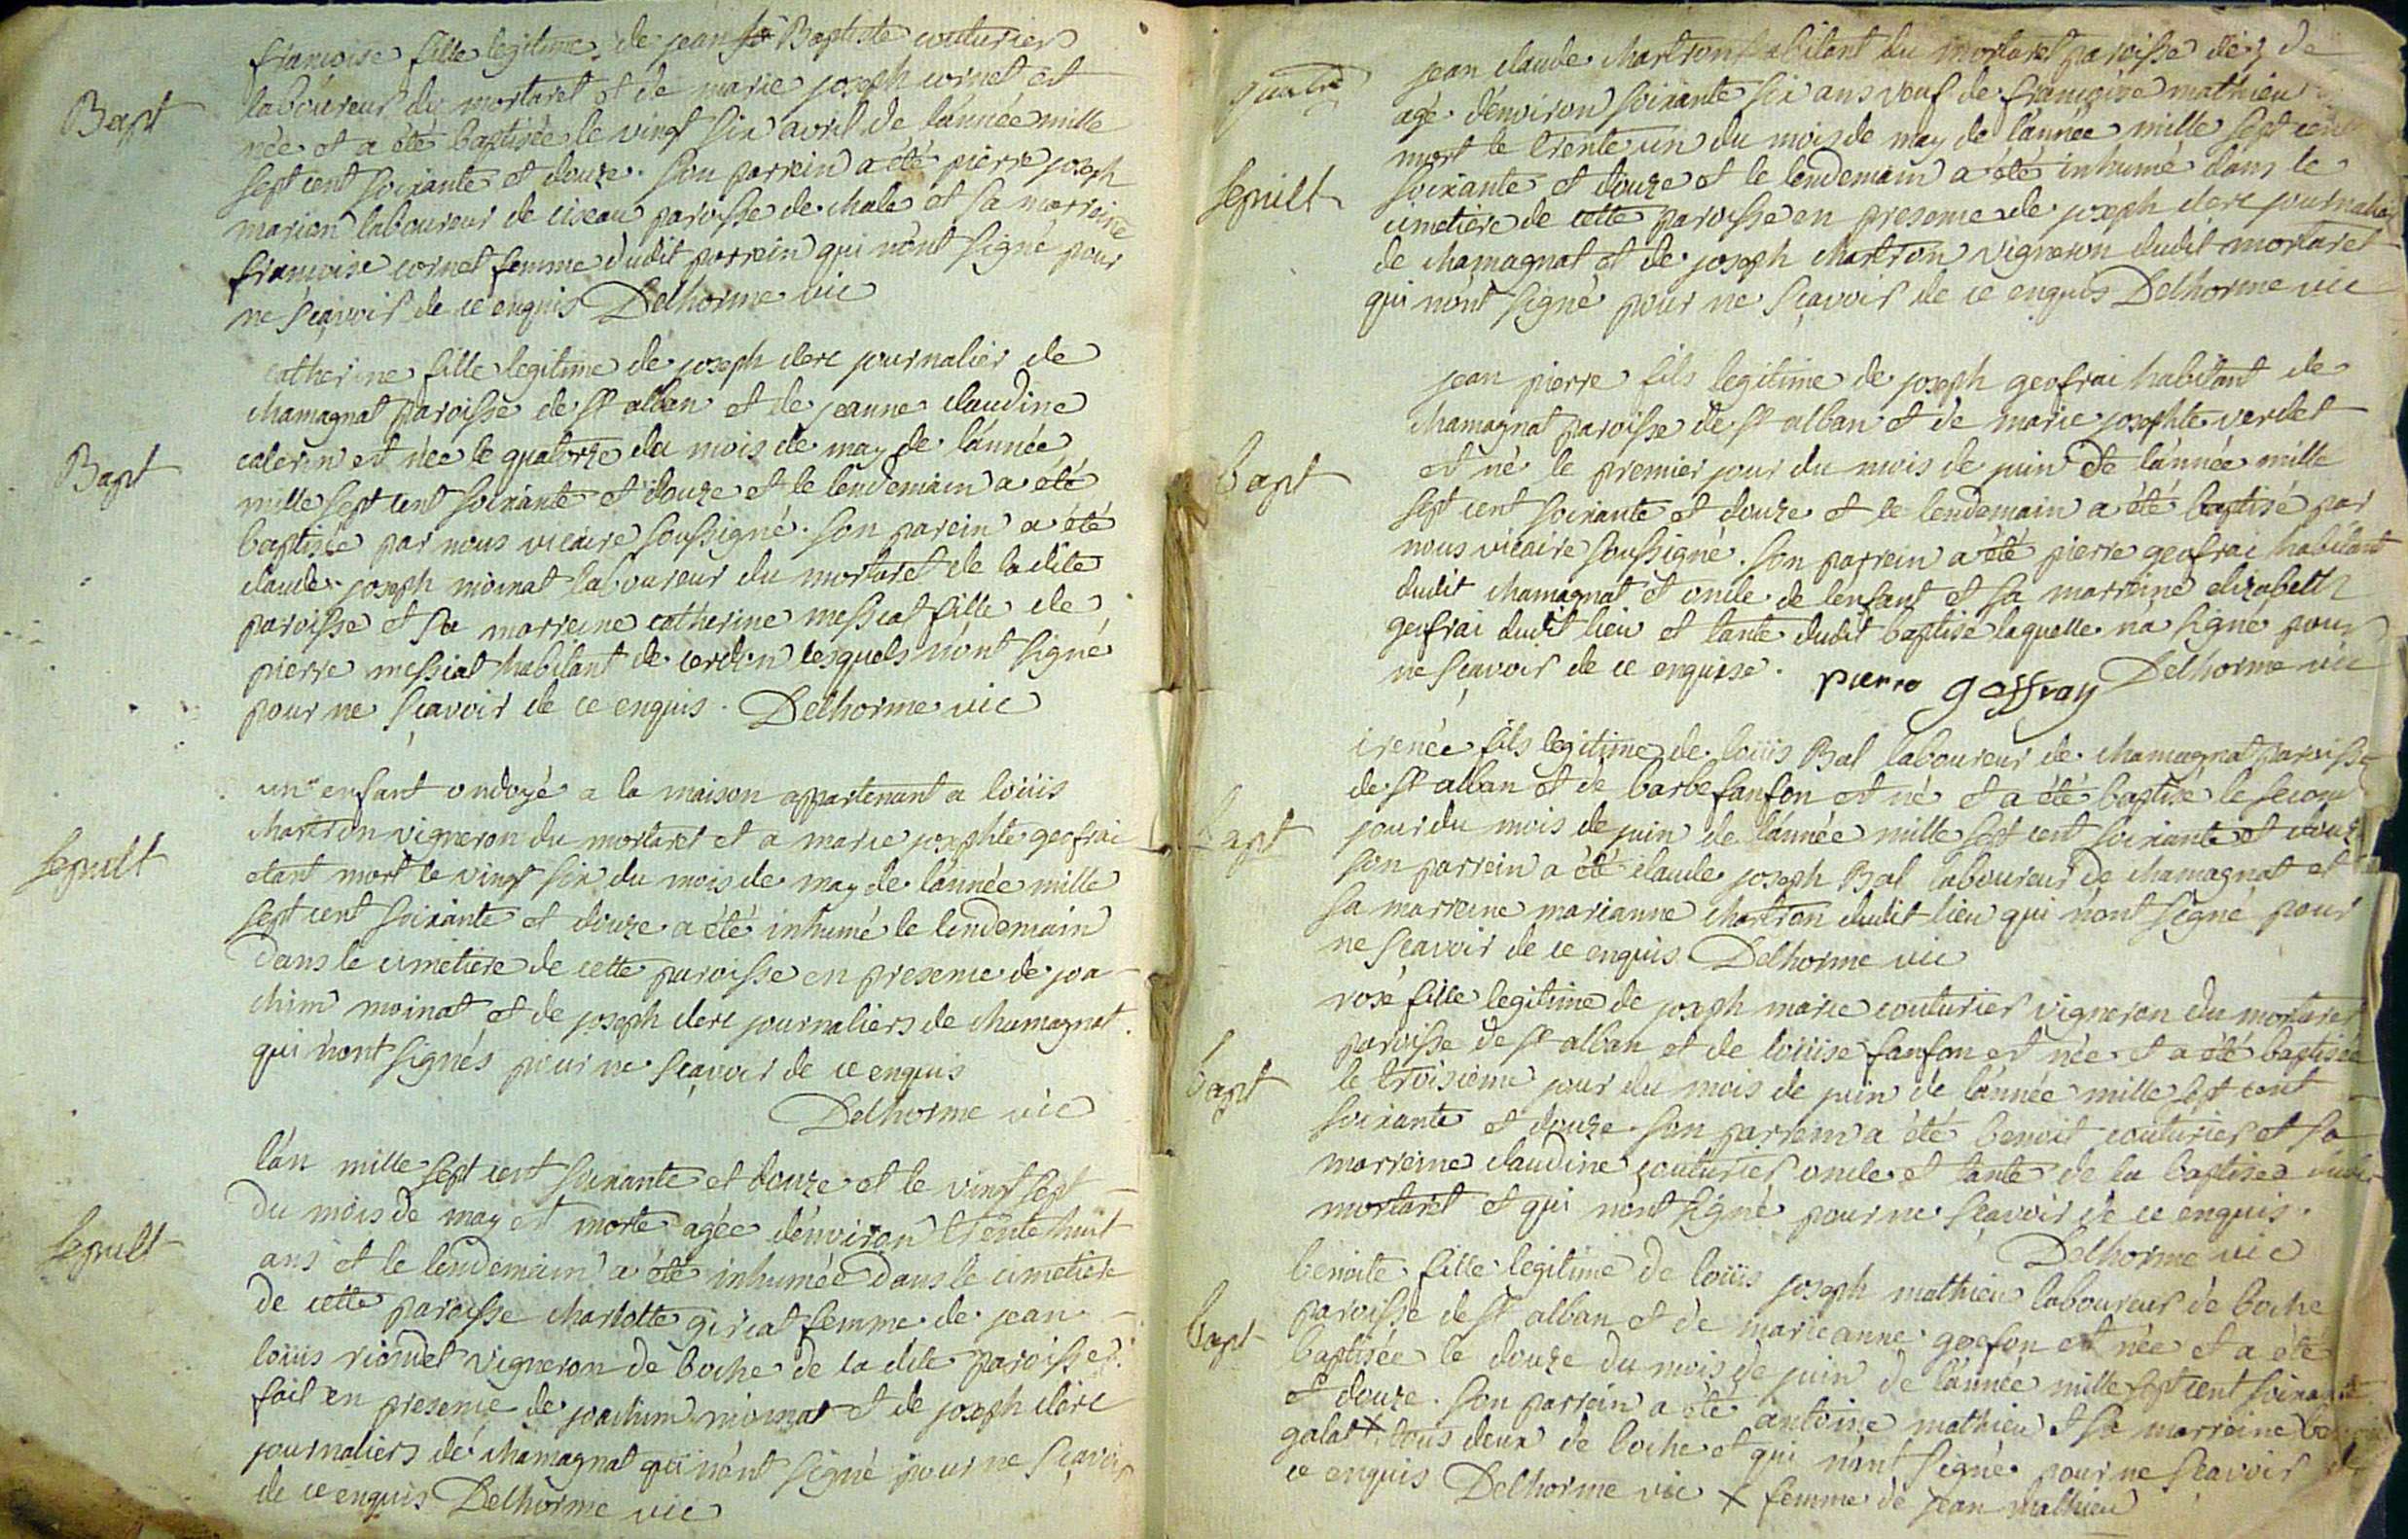 francoise fille legitime de jean Baptiste couturier
laboureur du mortaret et de marie joseph cornet est
Bapt
née et a été baptisée le vingt six avril de l'année mille
sept cent soixante et douze. Son parrein a été pierre joseph
marion laboureur de ciseau paroisse de chale et sa marreine
francoise cornet femme dudit parrein qui n'ont signé pour
ne sçavoir de ce enquis Delhorme vic
catherine fille legitime de joseph clerc journalier de
chamagnat paroisse de st alban et de jeanne claudine
Bapt
calerin est née le quatorze du mois de may de l'année
mille sept cent soixante et douze et le lendemain a été
baptisée par nous vicaire soussigné. son parein a été
claude joseph moinat laboureur du mortaret de la dite
paroisse et sa marreine catherine messiat fille de
pierre messiat habitant de cerdon lesquels n'ont signé
pour ne sçavoir de ce enquis. Delhorme vic
un enfant ondoyé a la maison appartenant a loüis
chartron vigneron du mortaret et a marie josephte geofrai
sepult
etant mort le vingt six du mois de may de l'année mille
sept cent soixante et douze a été inhumé le lendemain
dans le cimetiere de cette paroisse en presence de joa-
chim moinat et de joseph clerc journaliers de chamagnat.
qui n'ont signés pour ne sçavoir de ce enquis
Delhorme vic
l'an mille sept cent soixante et douze et le vingt sept
du mois de may est morte agée d'environ trente huit
sepult
ans et le lendemain a été inhumée dans le cimetiere
de cette paroisse charlotte giriat femme de jean
loüis riondet vigneron de boche de la dite paroisse.
fait en presence de joachim moinat et de joseph clerc
journaliers de chamagnat qui n'ont signé pour ne sçavoir
de ce enquis Delhorme vic
jean claude chartron habitant du mortaret paroisse de
agé d'environ soixante six ans veuf de francoise mathieu
mort le trente un du mois de may de l'année mille sept cent
sepult
soixante et douze et le lendemain a été inhumé dans le
cimetiere de cette paroisse en presence de joseph clerc journalier
de chamagnat et de joseph chartron vigneron dudit mortaret
qui n'ont signé pour ne sçavoir de ce enquis Delhorme vic
jean pierre fils legitime de joseph geofrai habitant de
chamagnat paroisse de st alban et de marie josephte verdet
bapt
est né le premier jour du mois de juin de l'année mille
sept cent soixante et douze et le lendemain a été baptisé par
nous vicaire soussigné. son parrein a été pierre geofrai habitant
dudit chamagnat et oncle de l'enfant et sa marreine elizabeth
geofrai dudit lieu et tante dudit baptisé laquelle n'a signé pour
ne sçavoir de ce enquise. pierre geffray Delhorme vic
irenée fils legitime de loüis Bal laboureur de chamagnat paroisse
de st alban et de barbe fanfon est né et a été baptisé le second
bapt
jour du mois de juin de l'année mille sept cent soixante et douze
son parrein a été claude joseph Bal laboureur de chamagnat et
sa marreine marianne chartron dudit lieu qui n'ont signé pour
ne sçavoir de ce enquis Delhorme vic
rose fille legitime de joseph marie couturier vigneron du mortaret
paroisse de st alban et de loüise fanfon est née et a été baptisée
bapt
le troisieme jour du mois de juin de l'année mille sept cent
soixante et douze. son parrein a été benoit couturier et sa
marreine claudine couturier oncle et tante de la baptisée
mortaret et qui n'ont signé pour ne sçavoir de ce enquis.
Delhorme vic
benoite fille legitime de loüis joseph mathieu laboureur de boche
paroisse de st alban et de marie anne goefon est née et a été
bapt
baptisée le douze du mois de juin de l'année mille sept cent soixante
et douze. son parrein a été antoine mathieu et sa marreine
galat x tous deux de boche et qui n'ont signé pour ne sçavoir de
ce enquis Delhorme vic x femme de jean mathieu